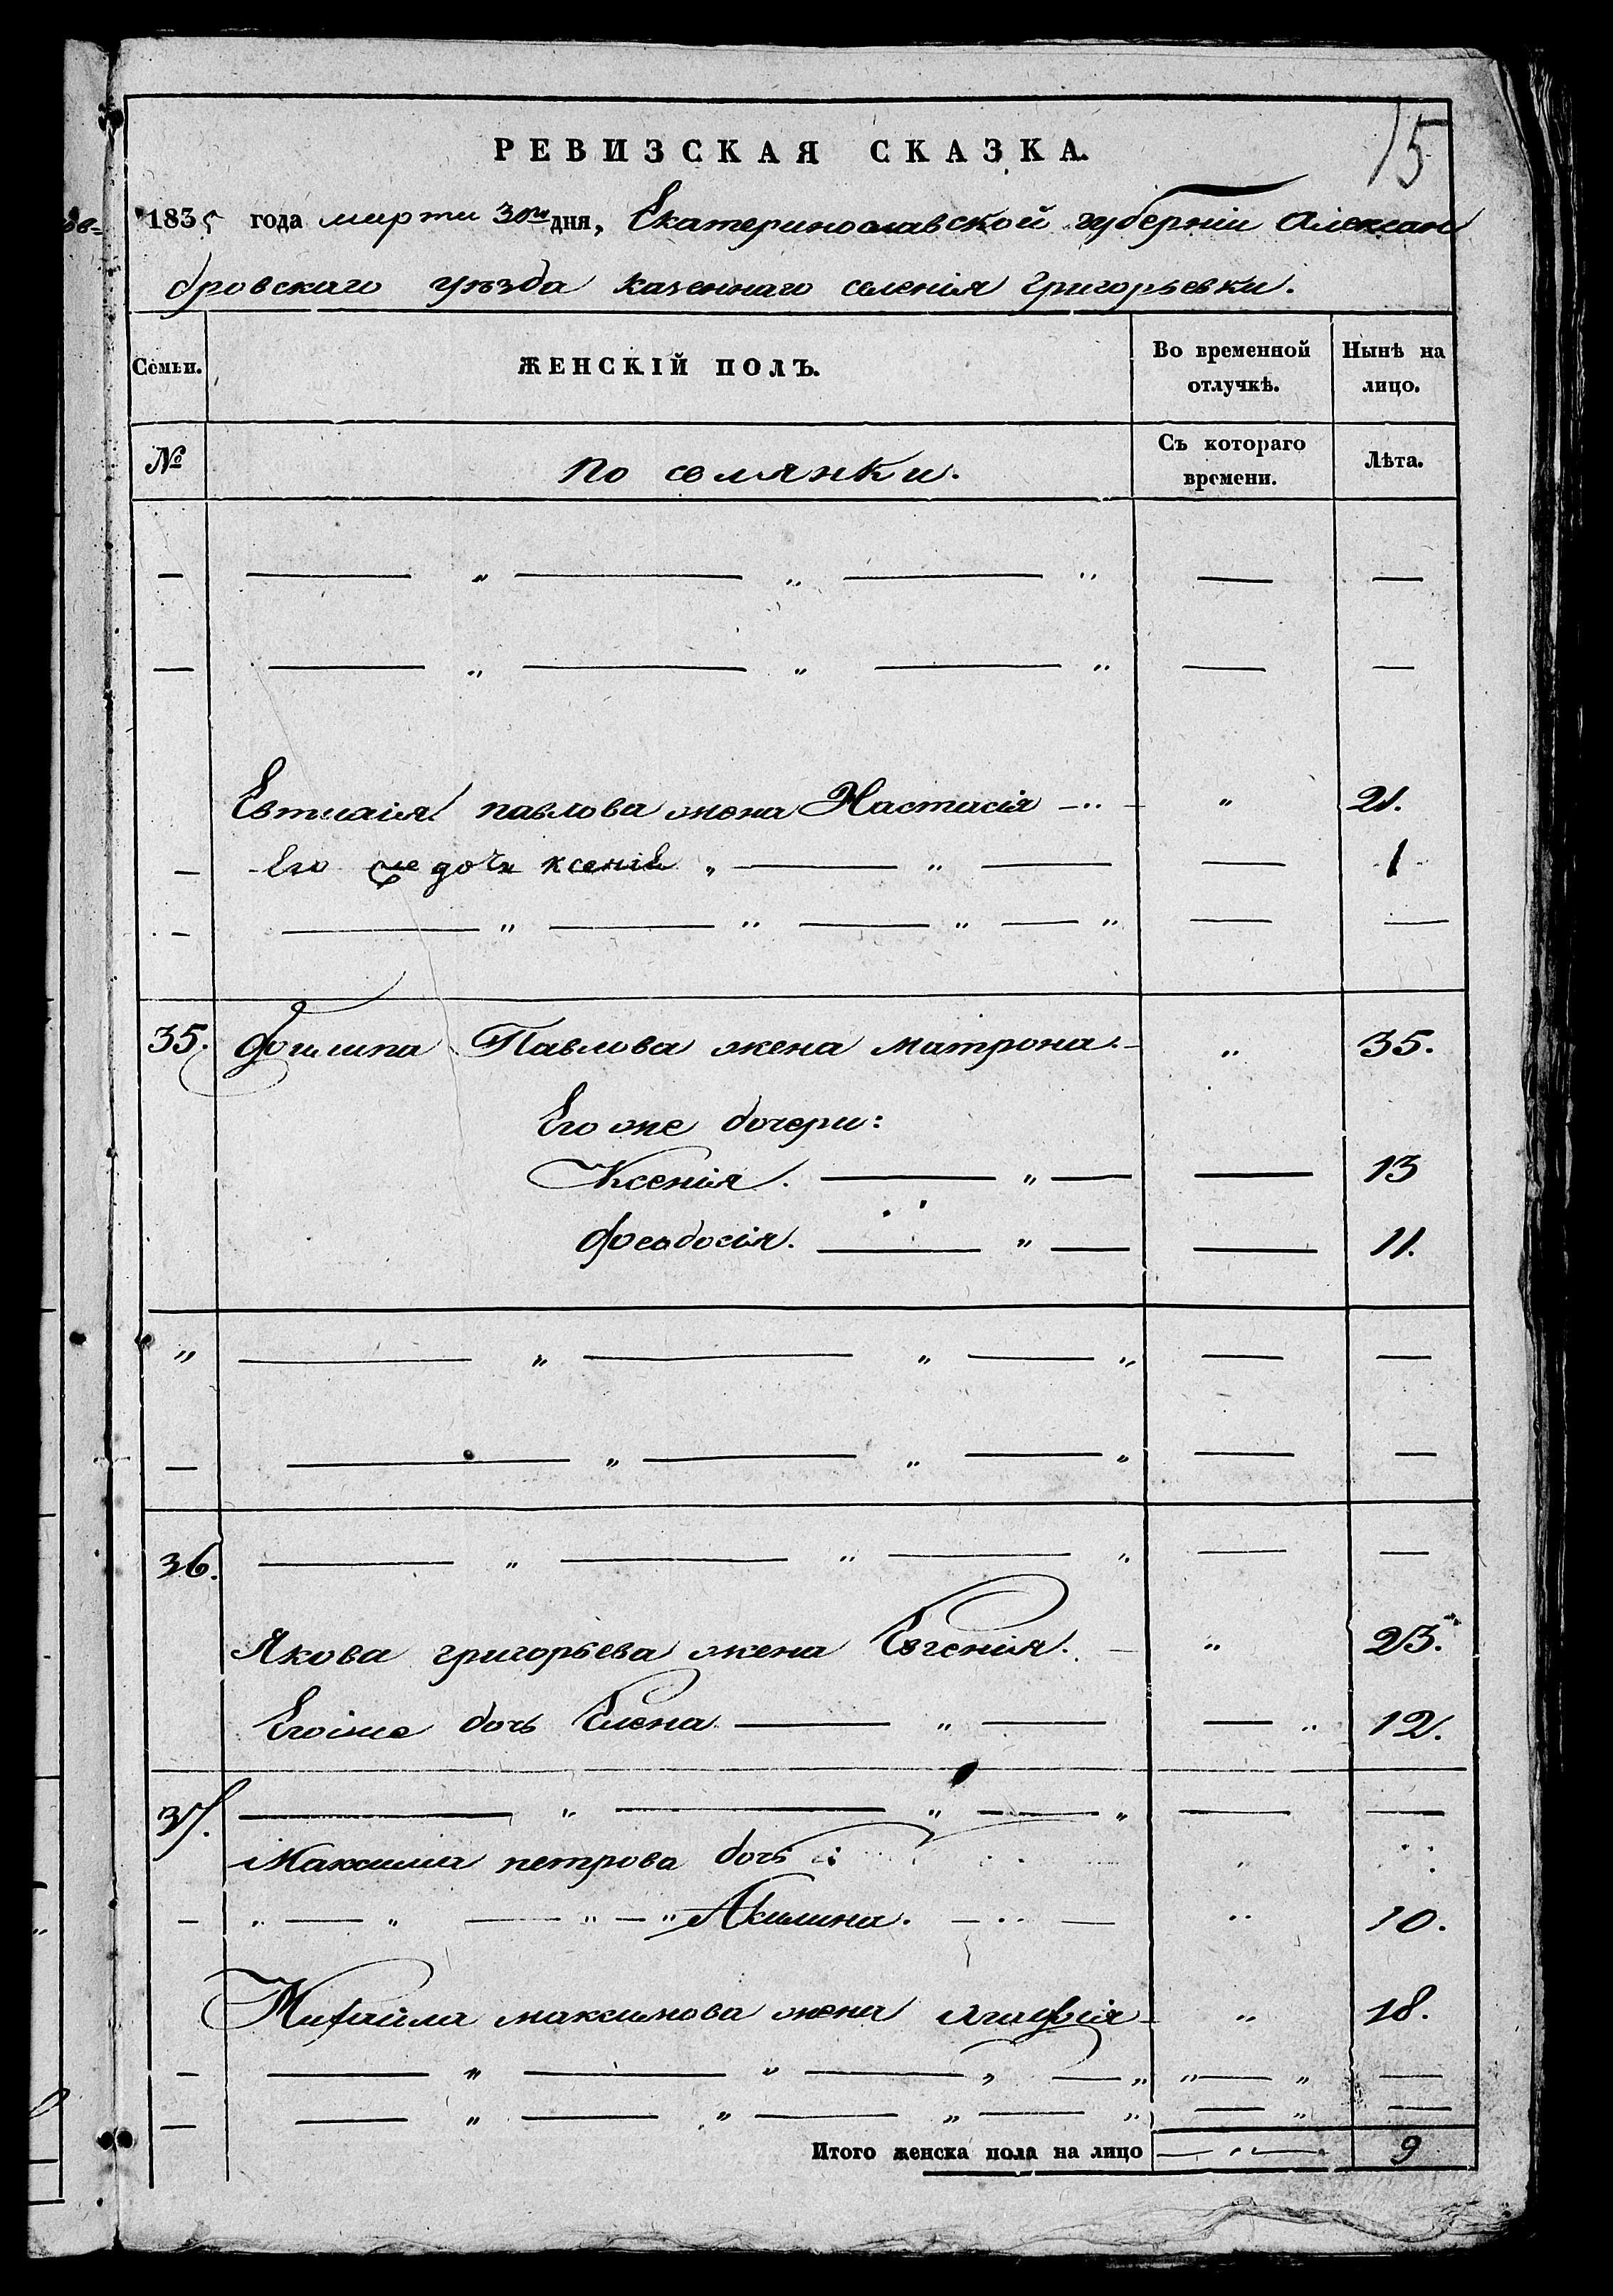 15
РЕВИЗСКАЯ СКАЗКА.
1835 года марта 30го дня, Екатеринославской губерніи Алексан
дровскаго уѣзда казеннаго селенія Григорьевки.
Семьи. ЖЕНСКІЙ ПОЛЪ. Во временной отлучкѣ. Нынѣ на лицо.
№ Поселянки. Съ котораго времени. Лѣта.
— — „ — „ — „ — —
— — „ — „ — „ — —
павлова жена Настасія — „ — „ 21.
— Его же дочь ксенія „ — „ — — 1
— — „ — „ — „ — „ — —
35. Филипа Павлова жена Матрона. — „ 35.
Его же дочери:
Ксенія. — „ — — 13
Феодосія. — „ — — 11.
„ — „ — „ — „ — —
— — „ — „ — „ — —
36. — „ — „ — „ — —
Якова григорьева жена Евгенія. — „ 23.
Егоже дочь Елена — „ — — „ 12.
37. — „ — „ — „ — —
Максима петрова дочь : „
— „ — „ — „ — „ Акилина. — „ — „ 10.
Михайла максимова жена Агафія — „ 18.
— — „ — „ — „ — „ „ — „ —
— — „ — „ — „ — „ — „ —
Итого женска пола на лицо — „ — 9